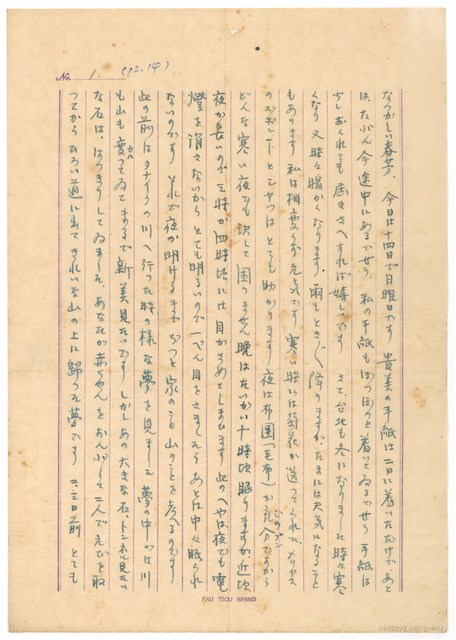 No. 1. (12.14)
なつかしい春芳、今日は十四で日曜日です 貴美の手紙は二日に着いただけであと
は、たぶん今途中にあるでせう、私の手紙もぽつぽつと着いてゐるでせう 手紙は
少しおくれても届きさへすれば嬉しいです さて、台北も冬になりました 時々寒
くなり又時々暖かくなります、雨もときどき降りますが、たまには天気になること
もあります 私は相変らず元気です 寒い時には菊花が送つてくれた、メリヤス
のズボンとシャツはとても助かります 夜は布団(毛布)が充分ですから
どんな寒い夜でも決して困りません 晩はたいがい十時頃眠りますが近頃
夜が長いので三時か四時頃には目がさめてしまひます 此のへやは夜でも電
燈を消さないから とても明るいので一ぺん目をさましたら あとは中々眠られ
ないのです それで夜が明けるまで ずつと家のこと山のことを考へるのです
此の前はタナイクの川へ行つた時の様な夢を見ました 夢の中では川
も山も変つてゐて まるで新美見たいです しかしあの大きな石、トンネル見たい
な石は、はつきりしてゐました、あなたが赤ちやんをおんぶして二人でえびを取
つてから ひろい道に出て きれいな山の上に帰つた夢です 二、三日前 とても
PAU TSOU BRAND